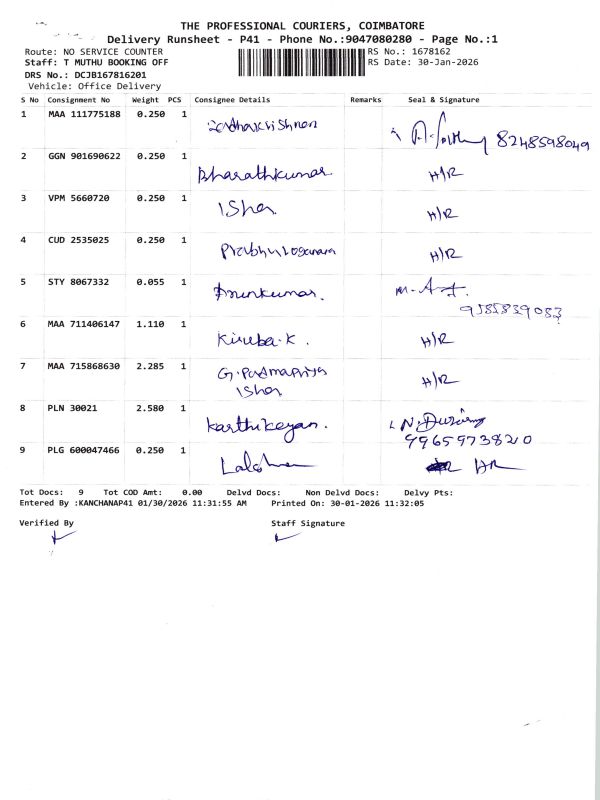 THE PROFESSIONAL COURIERS, COIMBATORE
Delivery Runsheet - P41 - Phone No.:9047080280 - Page No.:1
Route: NO SERVICE COUNTER RS No.: 1678162
Staff: T MUTHU BOOKING OFF RS Date: 30-Jan-2026
DRS No.: DCJB167816201
Vehicle: Office Delivery
S No Consignment No Weight PCS Consignee Details Remarks Seal & Signature
1 MAA 111775188 0.250 1 8248598049
2 GGN 901690622 0.250 1 Bharathkumar H/R
3 VPM 5660720 0.250 1 Isha H/R
4 CUD 2535025 0.250 1 H/R
5 STY 8067332 0.055 1 Arunkumar.
6 MAA 711406147 1.110 1 Kireba.K. H/R
7 MAA 715868630 2.285 1 G.Padmapriya H/R
Isha
8 PLN 30021 2.580 1 Karthikeyan.
9965973820
9 PLG 600047466 0.250 1 HR
Tot Docs: 9 Tot COD Amt: 0.00 Delvd Docs: Non Delvd Docs: Delvy Pts:
Entered By :KANCHANAP41 01/30/2026 11:31:55 AM Printed On: 30-01-2026 11:32:05
Verified By Staff Signature